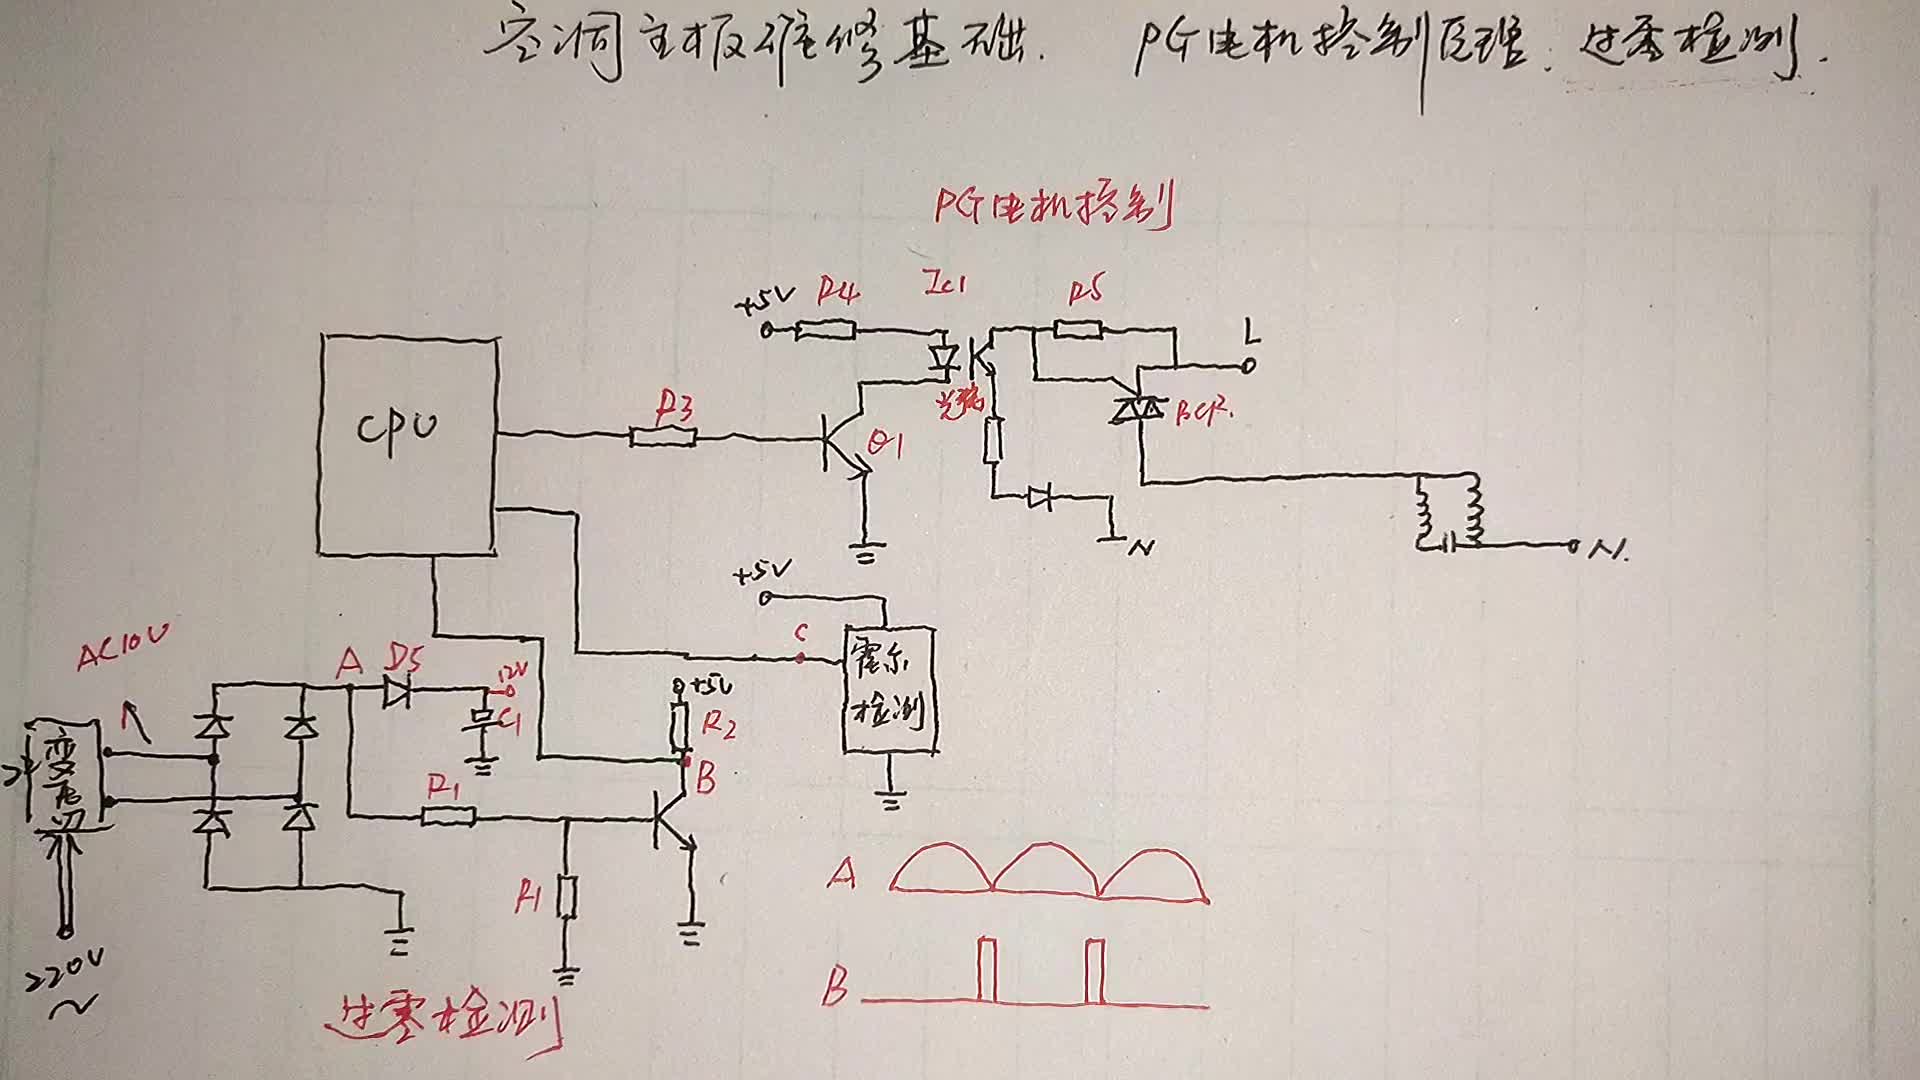 空调主板维修基础. PG电机控制原理. 过零检测.
PG电机控制
+5V R4 Ic1 R5 L
CPU R3 Q1 光耦 BCR.
N
N.
+5V
C
霍尔
检测
AC10V
A D5 12V
C1
+5V
R2
B
变压
R1
R1
220V
~
过零检测
A
B